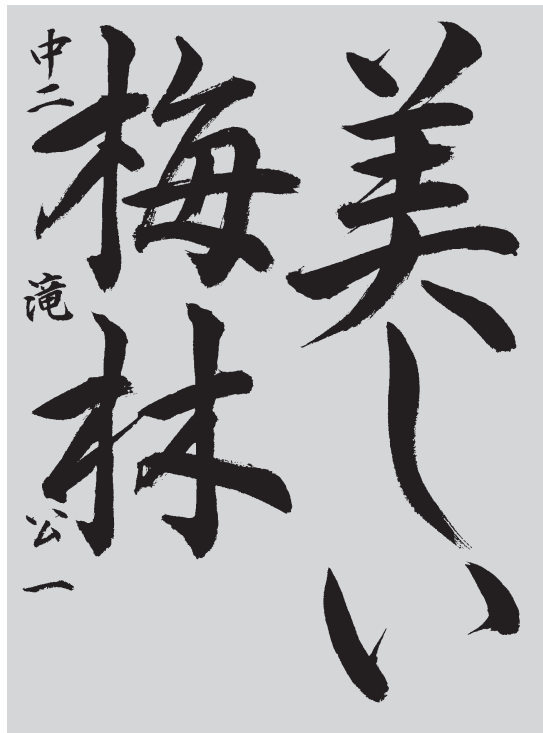 美しい
梅林
中二 滝 公一